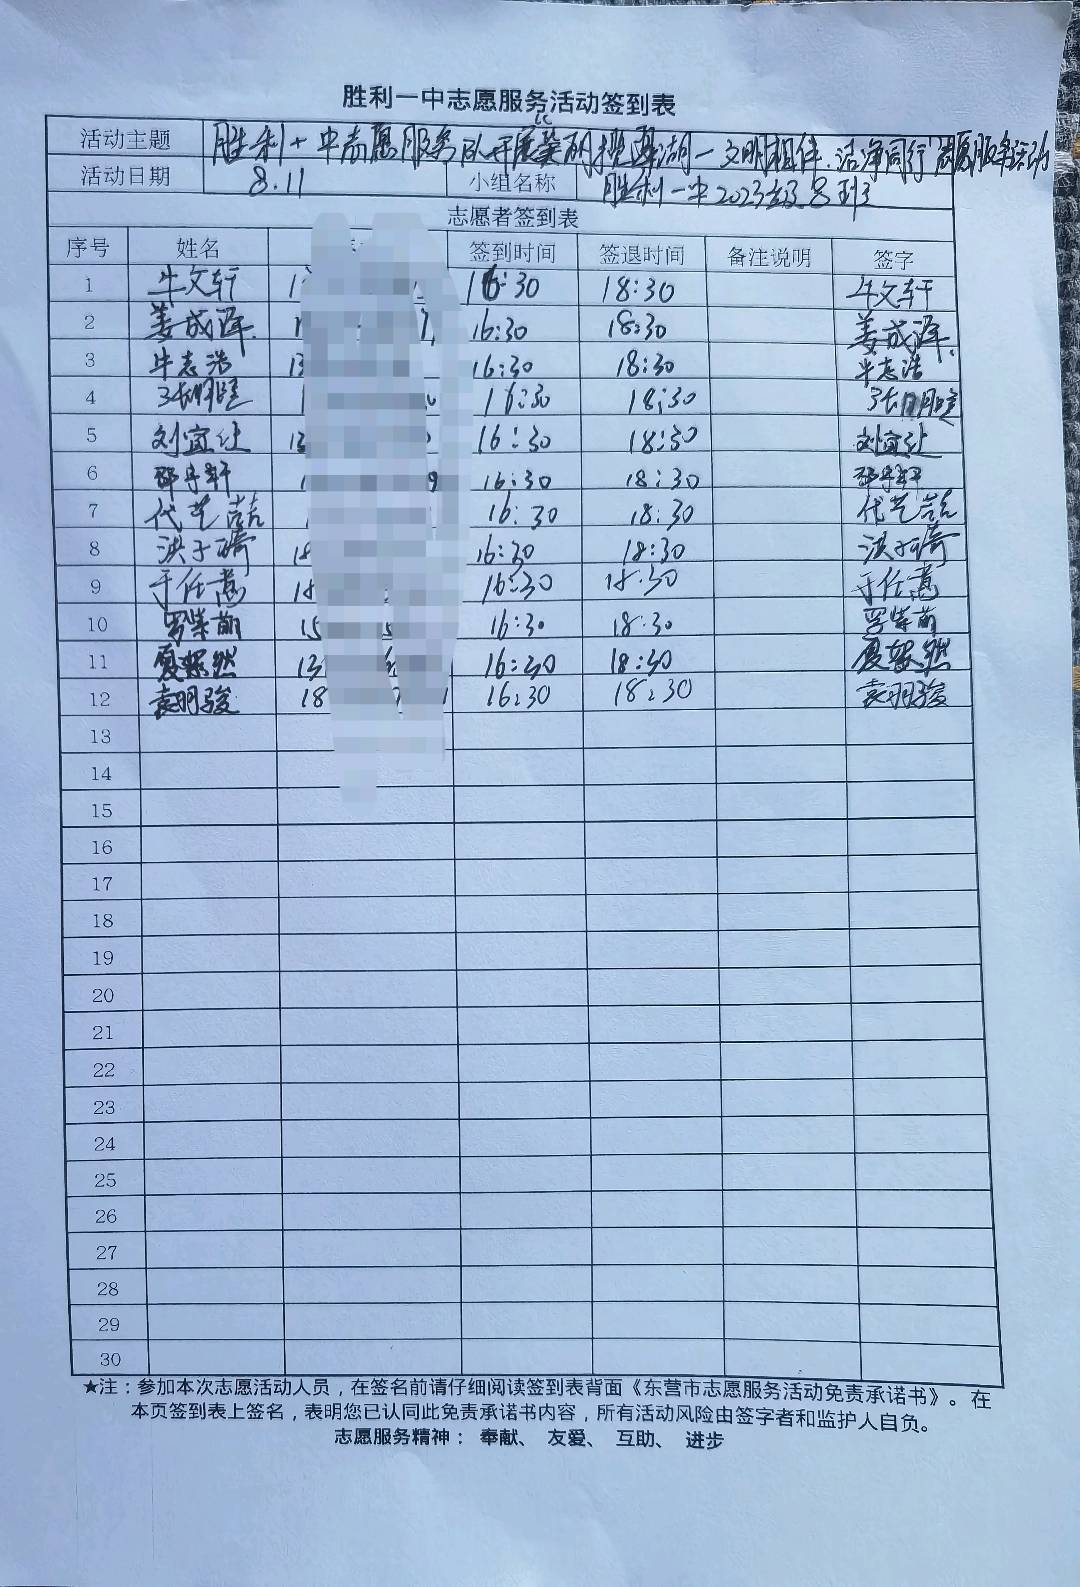 胜利一中志愿服务活动签到表
活动主题 胜利一中志愿服务队开展 湖一文明相伴,洁净同行"志愿服务活动
活动日期 8.11 小组名称 胜利一中2023级8班
志愿者签到表
序号 姓名 签到时间 签退时间 备注说明 签字
1 牛文轩 16:30 18:30 牛文轩
2 姜成泽. 16:30 18:30 姜成泽.
3 牛志浩 13 16:30 18:30 牛志浩
4 张明暄 16:30 18:30 张明暄
5 刘宜 13 16:30 18:30 刘宜
6 邵宇轩 9 16:30 18:30 邵宇轩
7 代艺喆 16:30 18:30 代艺喆
8 洪子琦 18 16:30 18:30 洪子琦
9 于任 16:30 18:30 于任
10 罗 萌 15 16:30 18:30 罗 萌
11 夏 然 13 16:30 18:30 夏 然
12 袁明骏 18 16:30 18:30 袁明骏
13
14
15
16
17
18
19
20
21
22
23
24
25
26
27
28
29
30
★注:参加本次志愿活动人员,在签名前请仔细阅读签到表背面《东营市志愿服务活动免责承诺书》。在
本页签到表上签名,表明您已认同此免责承诺书内容,所有活动风险由签字者和监护人自负。
志愿服务精神: 奉献、 友爱、 互助、 进步